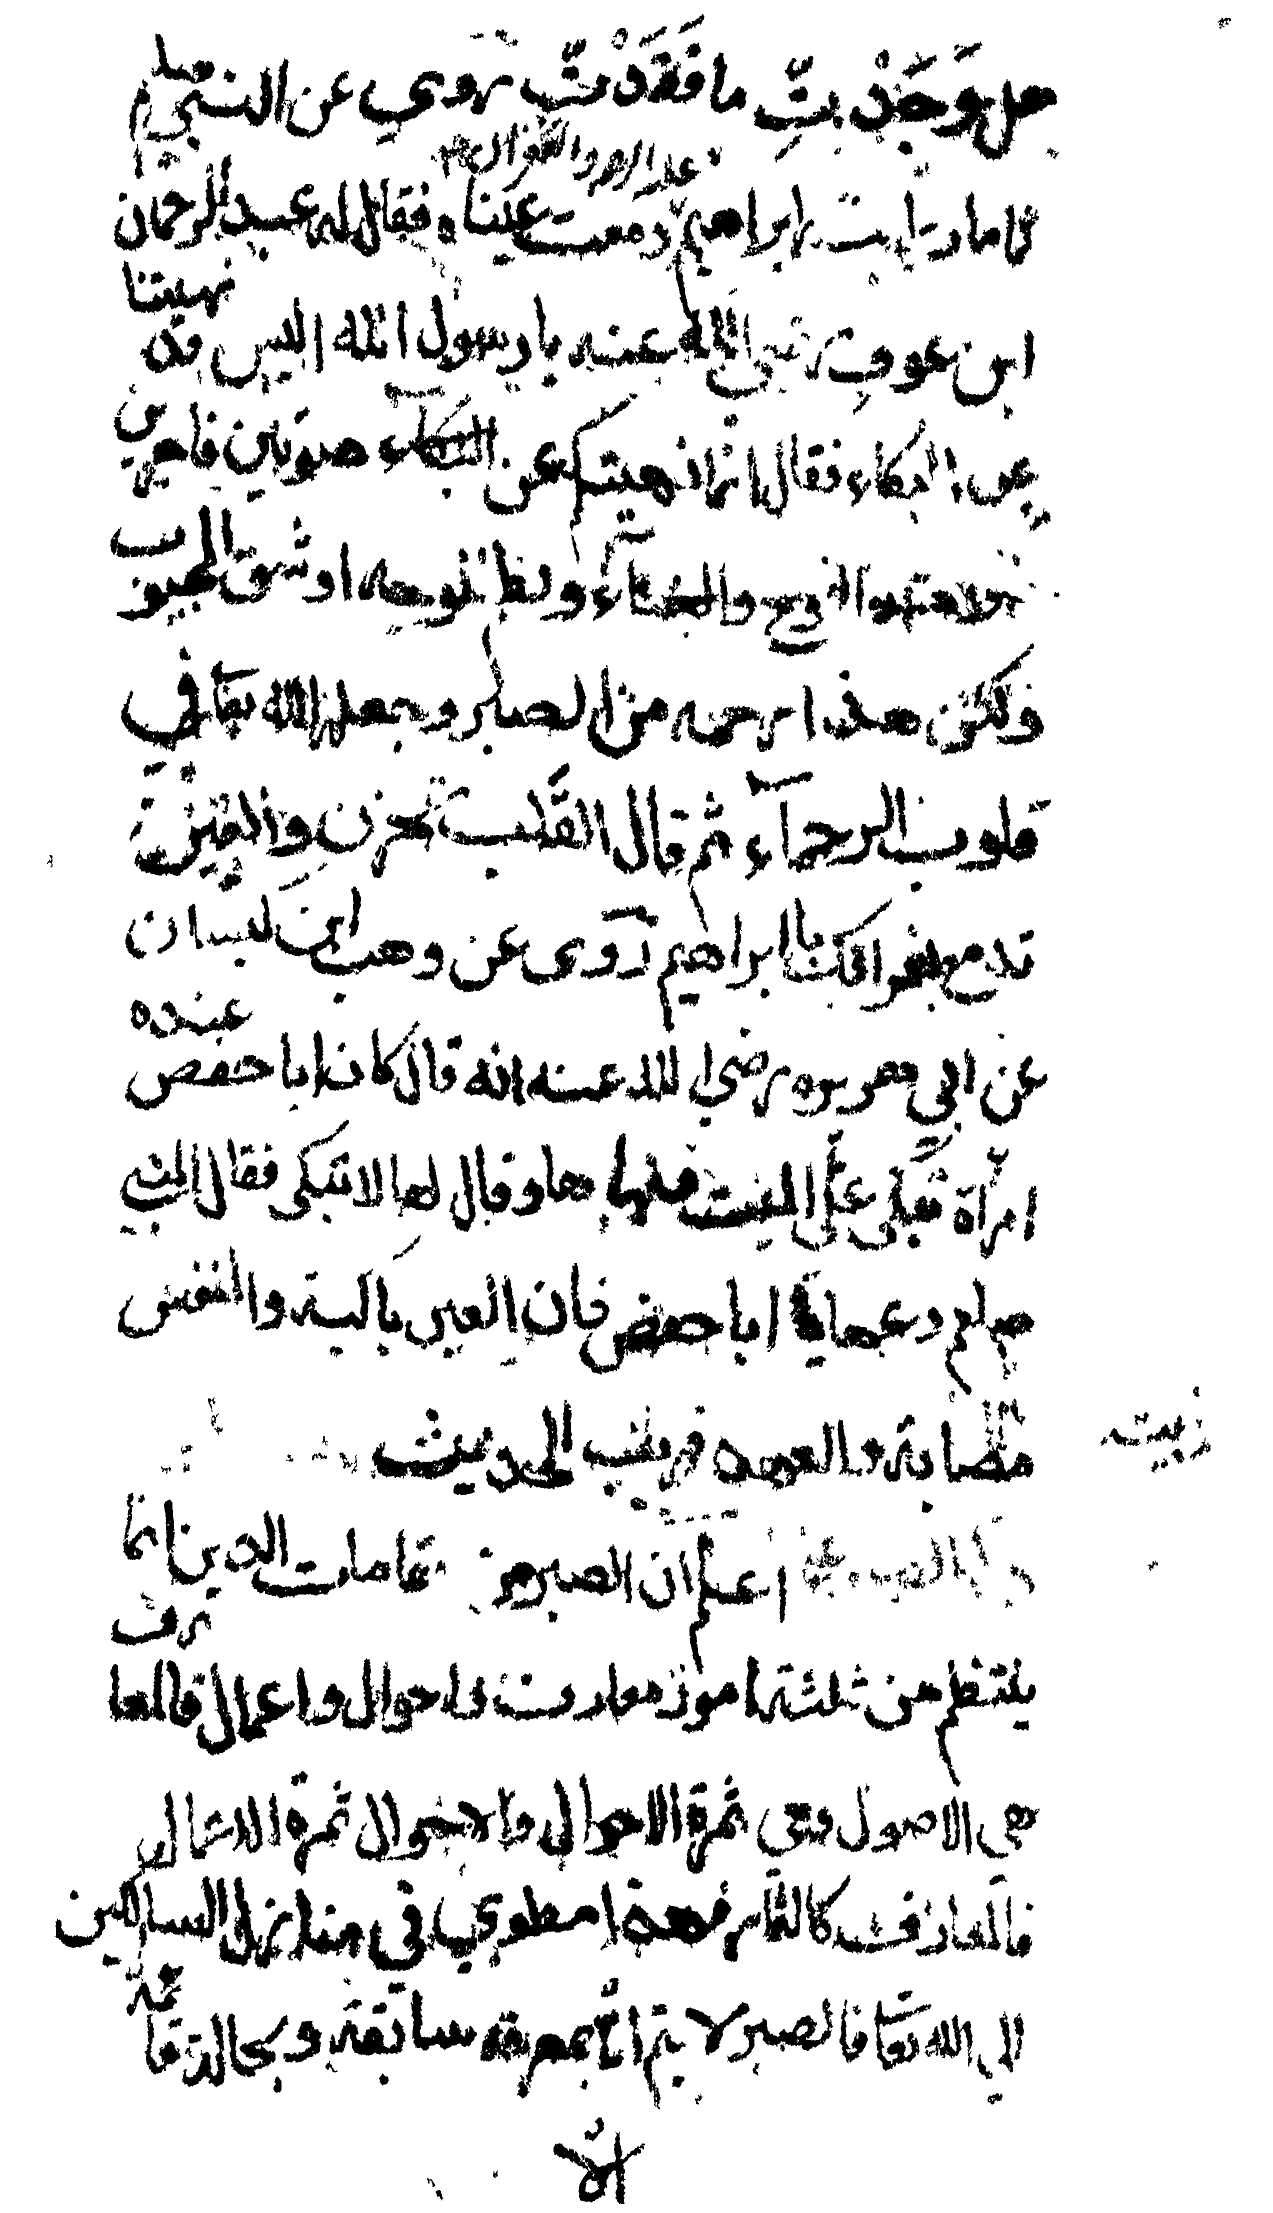 هل وَجَدْتِ ما فَقَدْتِ يروي عن النبي صلعم
لما مات ابنه ابراهيم دمعت عيناه فقال له عبد الرحمان
ابن عوف رضي الله عنه يا رسول الله اليس قد نهيتنا
عن البكاء فقال انما نهيتكم عن البكاء صوتين فاجرين
النوح والغناء ولطم الوجه او شق الجيوب
ولكن هذا رحمه من الصبر وجعلها الله تعا في
قلوب الرحماء ثم قال القلب تحزن والعين
تدمع بفراقك يا ابراهيم روى عن وهب ابن كيسان
عن ابي هريره رضي الله عنه انه قال كان ابا حفص عنده
امرأة تبكي على الميت فنهاها وقال لها لا تبكي فقال النبي
صلعم دعها يا ابا حفص فان العين باكية والنفس
مصابة والعهد قريب الحديث
اعلم ان الصبر من مقامات الدين انما
ينتظم من ثلثة امور معارف واحوال واعمال فالمعارف
هي الاصول وهي ثمرة الاحوال والاحوال ثمرة الاعمال
فالمعارف كالثمار فهذا مطوي في منازل السالكين
الى الله تعا فالصبر لا يتم الا بمعرفة سابقة وبحالة قائمة
الا